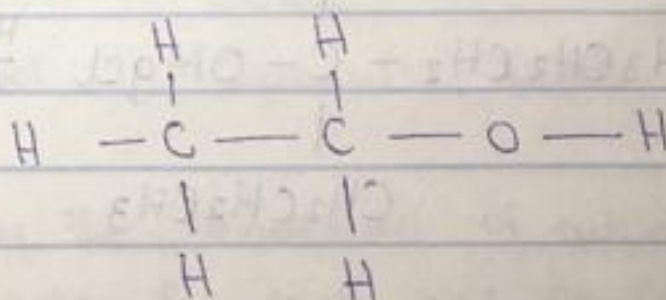 H H
H — C — C — O — H
H H